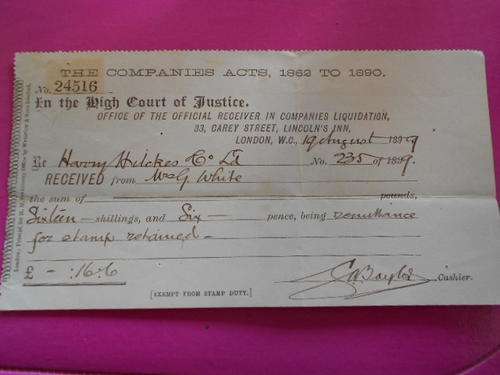 THE COMPANIES ACTS, 1862 TO 1890.
No. 24516
In the High Court of Justice.
OFFICE OF THE OFFICIAL RECEIVER IN COMPANIES LIQUIDATION,
33, CAREY STREET, LINCOLN'S INN,
LONDON, W.C., 19 August 1899
Re Harry Hilckes Co Ld No. 235 of 1899.
RECEIVED from Mrs G. White
the sum of pounds,
Sixteen — shillings, and Six — pence, being remittance
for stamp retained —
£ - : 16 : 6
Cashier.
[EXEMPT FROM STAMP DUTY.]